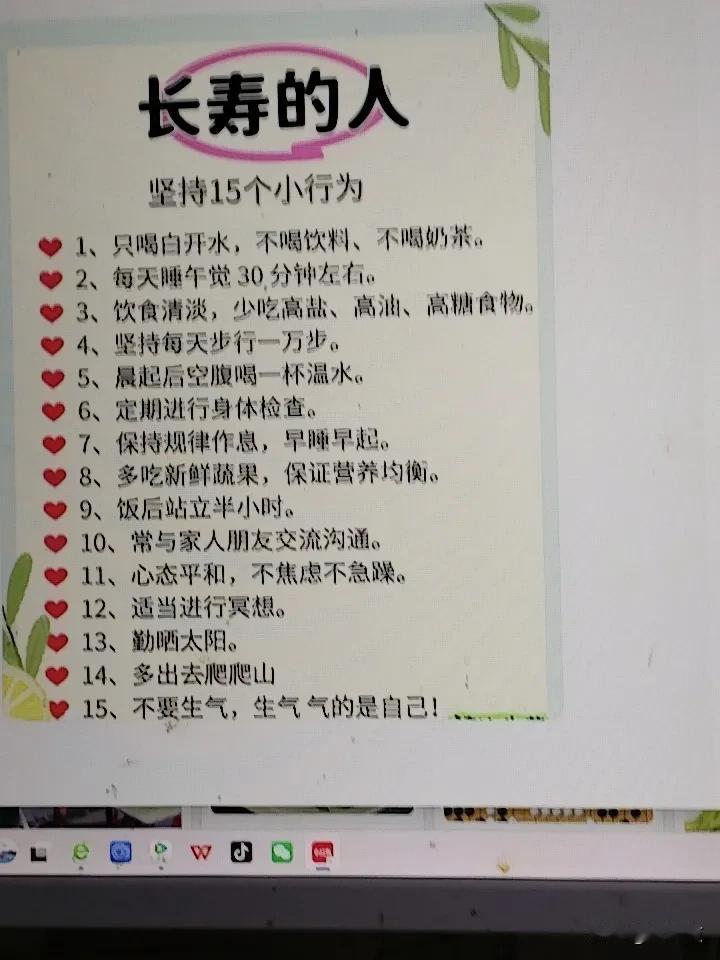 长寿的人
坚持15个小行为
1、只喝白开水，不喝饮料、不喝奶茶。
2、每天睡午觉 30 分钟左右。
3、饮食清淡，少吃高盐、高油、高糖食物。
4、坚持每天步行一万步。
5、晨起后空腹喝一杯温水。
6、定期进行身体检查。
7、保持规律作息，早睡早起。
8、多吃新鲜蔬果，保证营养均衡。
9、饭后站立半小时。
10、常与家人朋友交流沟通。
11、心态平和，不焦虑不急躁。
12、适当进行冥想。
13、勤晒太阳。
14、多出去爬爬山
15、不要生气，生气 气的是自己！